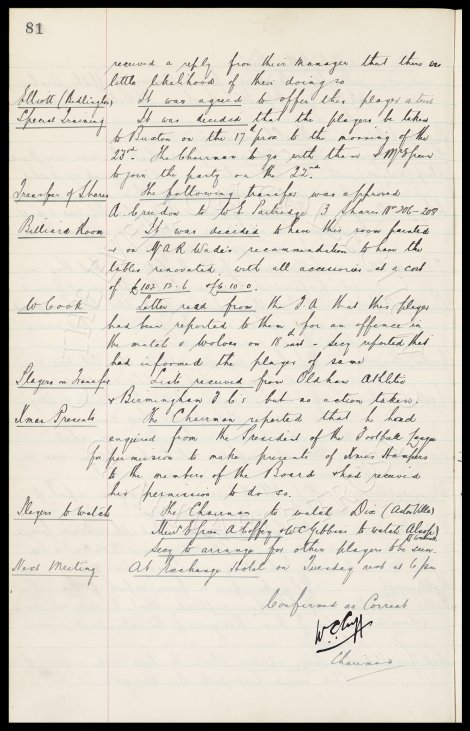 81
received a reply from their manager that there was
little likelihood of their doing so
Elliott (Bridlington) It was agreed to offer this player a trial
Special Training It was decided that the players be taken
to Buxton on the 17th prox to the morning of the
23rd. The Chairman to go with them & Mr Green
to join the party on the 22nd.
Transfer of Shares The following transfer was approved
A. to W E Partridge 3 Shares No 206-208
Billiard Room It was decided to have this room painted
& on Mr A R Wade's recommendation to have the
tables renovated with all accessories at a cost
of £102-12-6 & £6-10-0.
W Cook Letter read from the F.A that this player
had been reported to them for an offence in
the match v Wolves on 18 inst - secy reported that
had informed the player of same
Players on Transfer Lists received from Oldham Athletic
& Birmingham F C's but no action taken.
Xmas Presents The Chairman reported that he had
enquired from the President of the Football League
for permission to make presents of Xmas Hampers
to the members of the Board & had received
his permission to do so.
Players to watch The Chairman to watch Dix (Aston Villa)
Messrs Green A Coffey & W C Gibbins to watch Alsop
Secy to arrange for other players to be seen.
Next Meeting At Exchange Hotel on Tuesday next at 6 pm
Confirmed as Correct
W.C. Cuff
Chairman